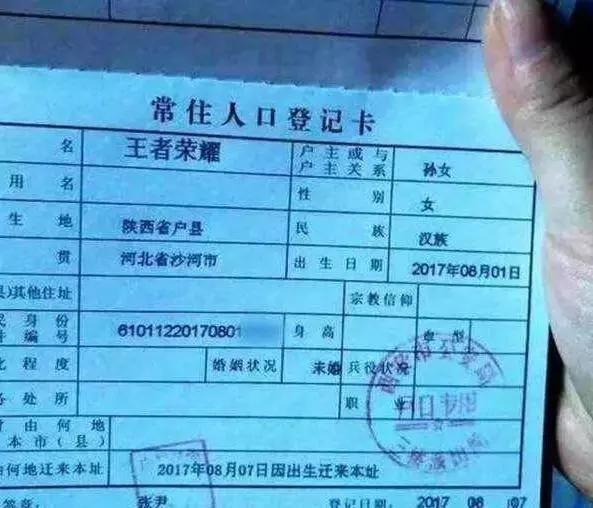 常住人口登记卡
名 王者荣耀 户主或与户主关系 孙女
用名 性别 女
生地 陕西省户县 民族 汉族
贯 河北省沙河市 出生日期 2017年08月01日
县)其他住址 宗教信仰
民身份件编号 61011220170801 身高 血型
化程度 婚姻状况 未婚 兵役状况
务处所 职业
时由何地本市(县)
何地迁来本址 2017年08月07日因出生迁来本址
签章: 张尹 登记日期: 2017 08 07